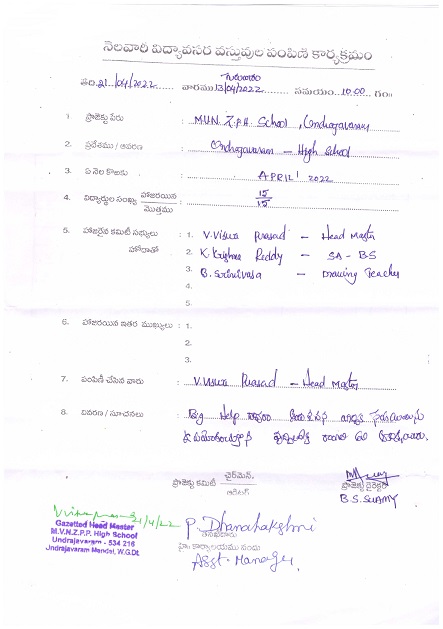 నెలవారి విద్యావసర వస్తువుల పంపిణి కార్యక్రమం
తేది 21/04/2022 వారము గురువారం 13/04/2022 సమయం 10.00 గం॥
1. ప్రాజెక్టు పేరు : M.V.N. Z.P.H. School, Undrajavaram
2. ప్రదేశము / ఆవరణ : Undrajavaram - High School
3. ఏ నెల కొఱకు : APRIL' 2022
4. విద్యార్ధుల సంఖ్య హాజరయిన / మొత్తము : 15 / 15
5. హాజరైన కమిటీ సభ్యులు హోదాతో : 1. V. Visura Prasad - Head Master
2. K. Krishna Reddy - SA - BS
3. B. Srinivasa - Drawing Teacher
4.
5.
6. హాజరయిన ఇతర ముఖ్యులు : 1.
2.
3.
7. పంపిణి చేసిన వారు : V. Visura Prasad - Head Master
8. వివరణ / సూచనలు : Big Help
ప్రాజెక్టు కమిటీ ఛైర్మెన్. / ఆడిటర్
ప్రాజెక్టు డైరెక్టర్
B.S. SWAMY
21/4/22
Gazetted Head Master
M.V.N.Z.P.P. High School
Undrajavaram - 534 216
Undrajavaram Mandal, W.G.Dt.
P. Dhanalakshmi
తనిఖీదారు
హెం కార్యాలయము నందు
Asst. Manager